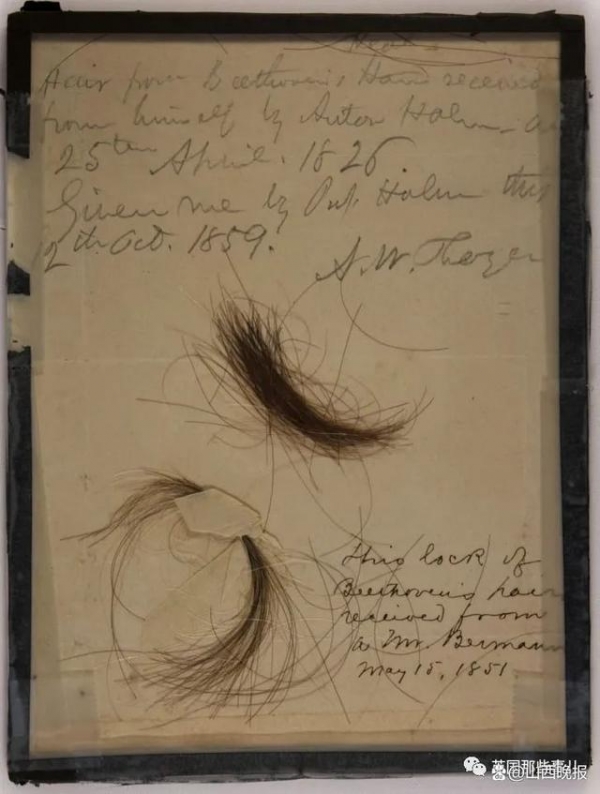 Hair from Beethoven's Hand received
from himself by Anton Halm
25ten April. 1826
Given me by Prof. Halm this
2th Oct. 1859.
A. W. Thayer
This lock of
Beethoven's hair
received from
a Mr. Bermann
May 15, 1851
英国那些事儿
山西晚报